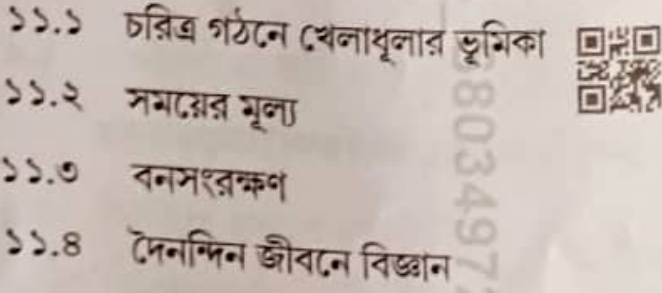 ১১.১ চরিত্র গঠনে খেলাধূলার ভূমিকা
১১.২ সময়ের মূল্য
১১.৩ বনসংরক্ষণ
১১.৪ দৈনন্দিন জীবনে বিজ্ঞান